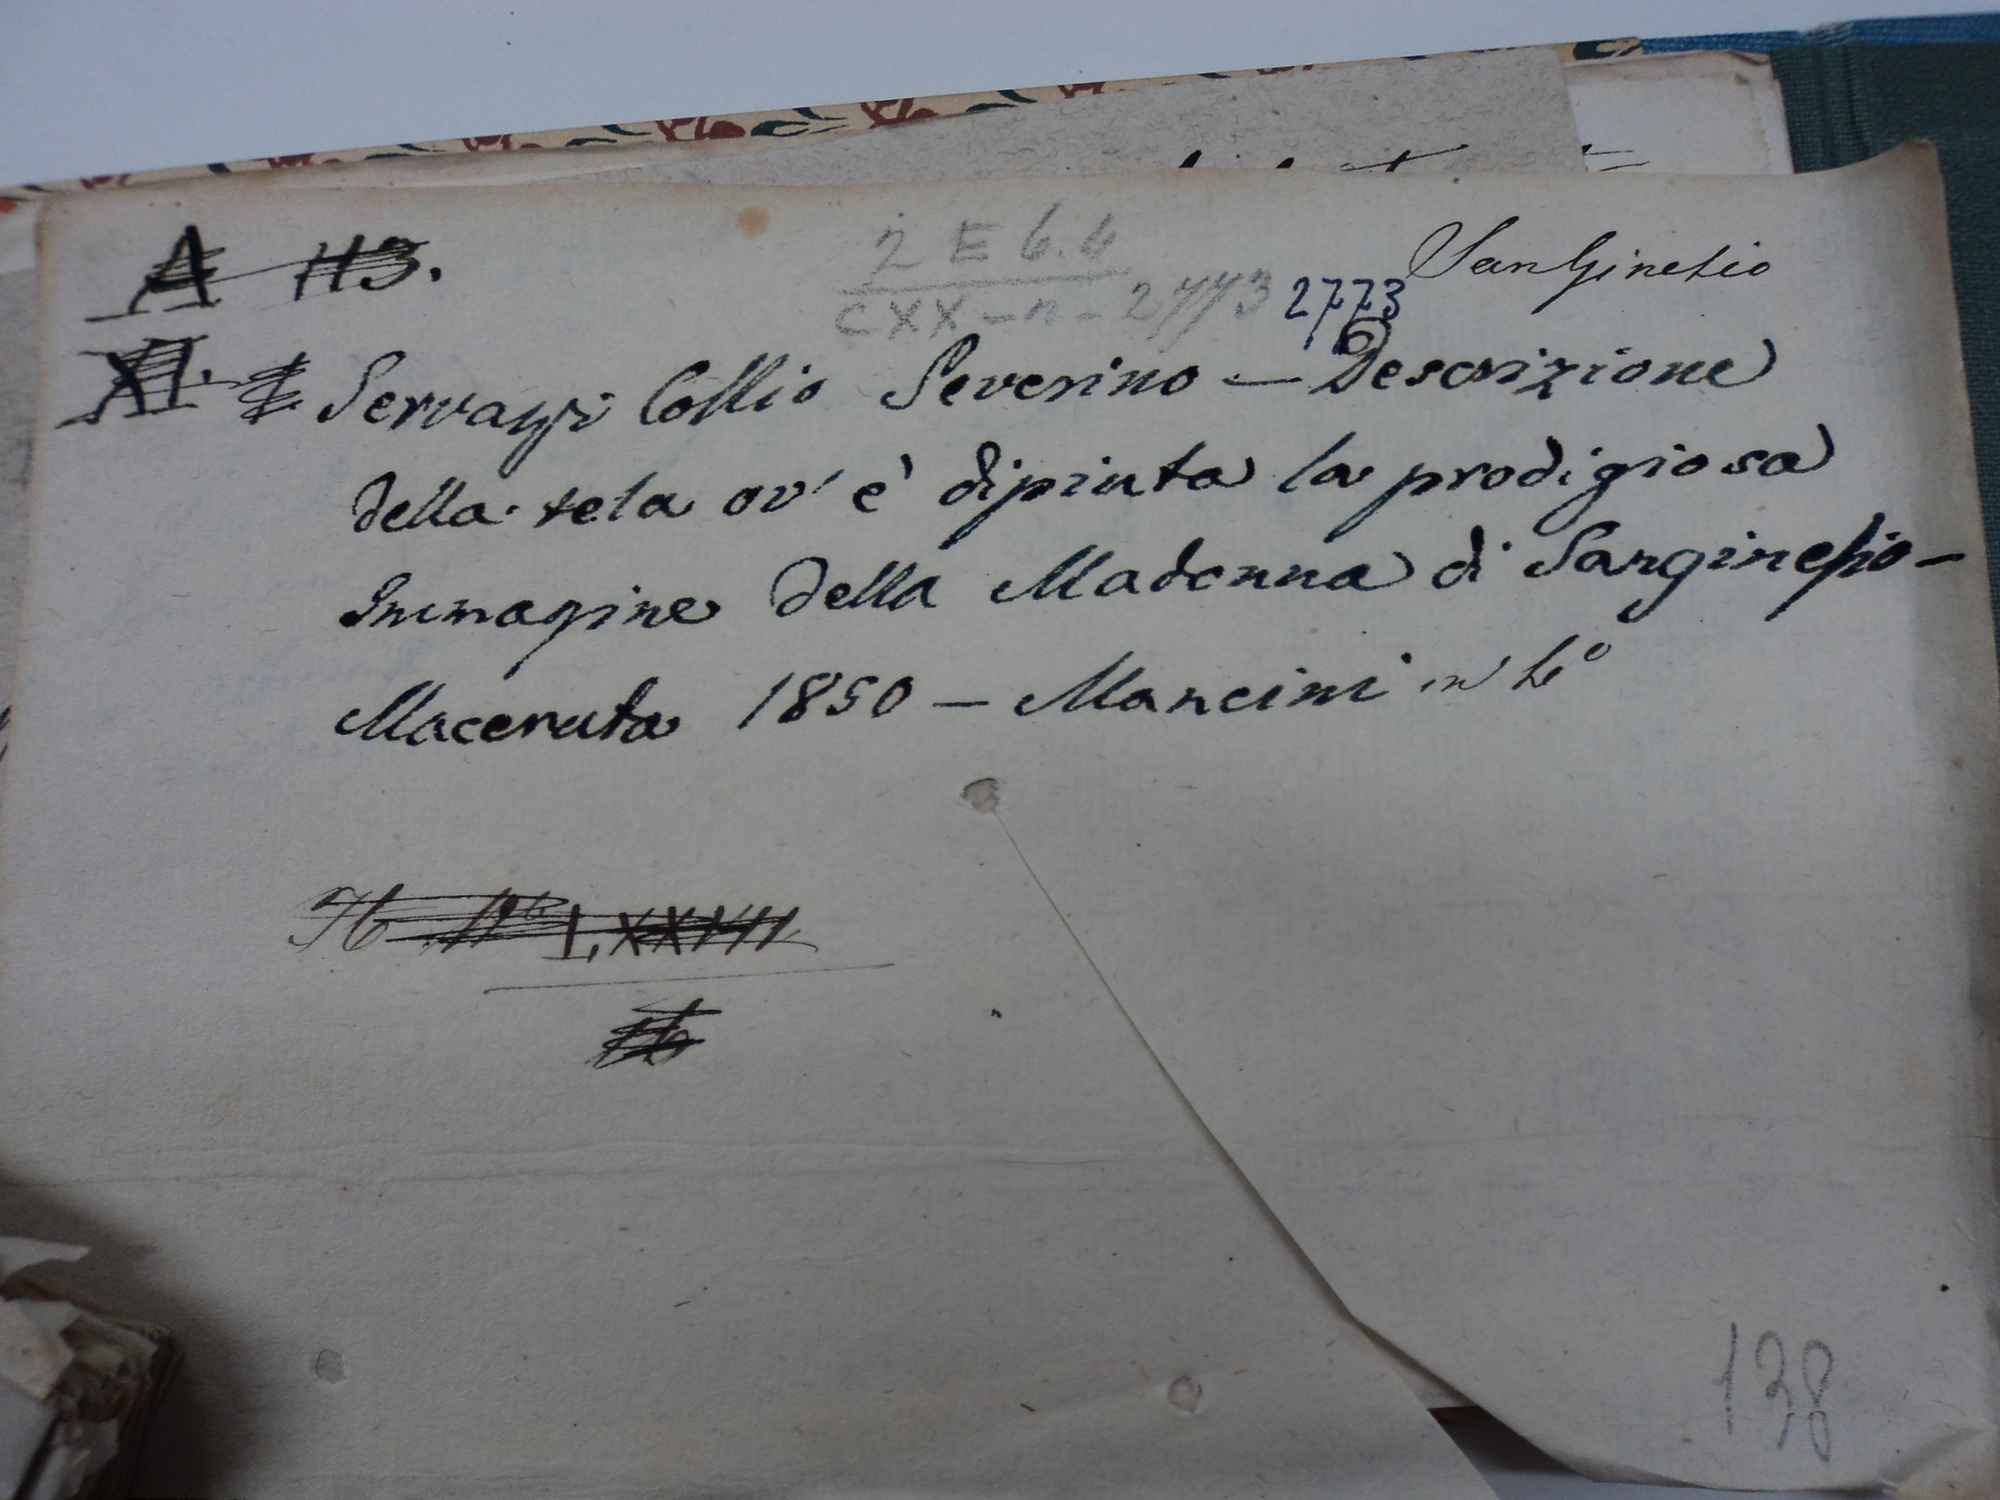 A 113.
2 E 6.4
CXX - n - 2773
2773
San Ginesio
XI.
Servanzi Collio Severino — Descrizione
della tela ov' è dipinta la prodigiosa
Immagine della Madonna di Sanginesio —
Macerata 1850 — Mancini in 4°
LXXVIII
138